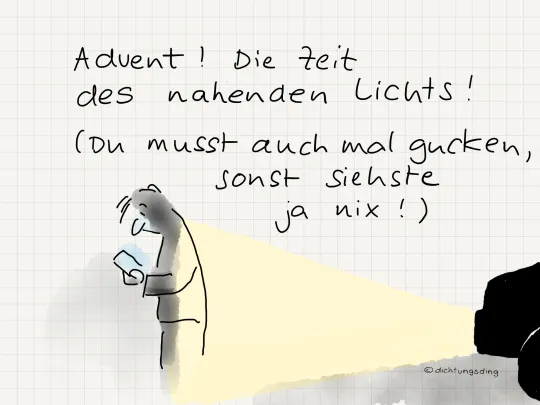 Advent! Die Zeit
des nahenden Lichts!
(Du musst auch mal gucken,
sonst siehste
ja nix!)
©dichtungsding